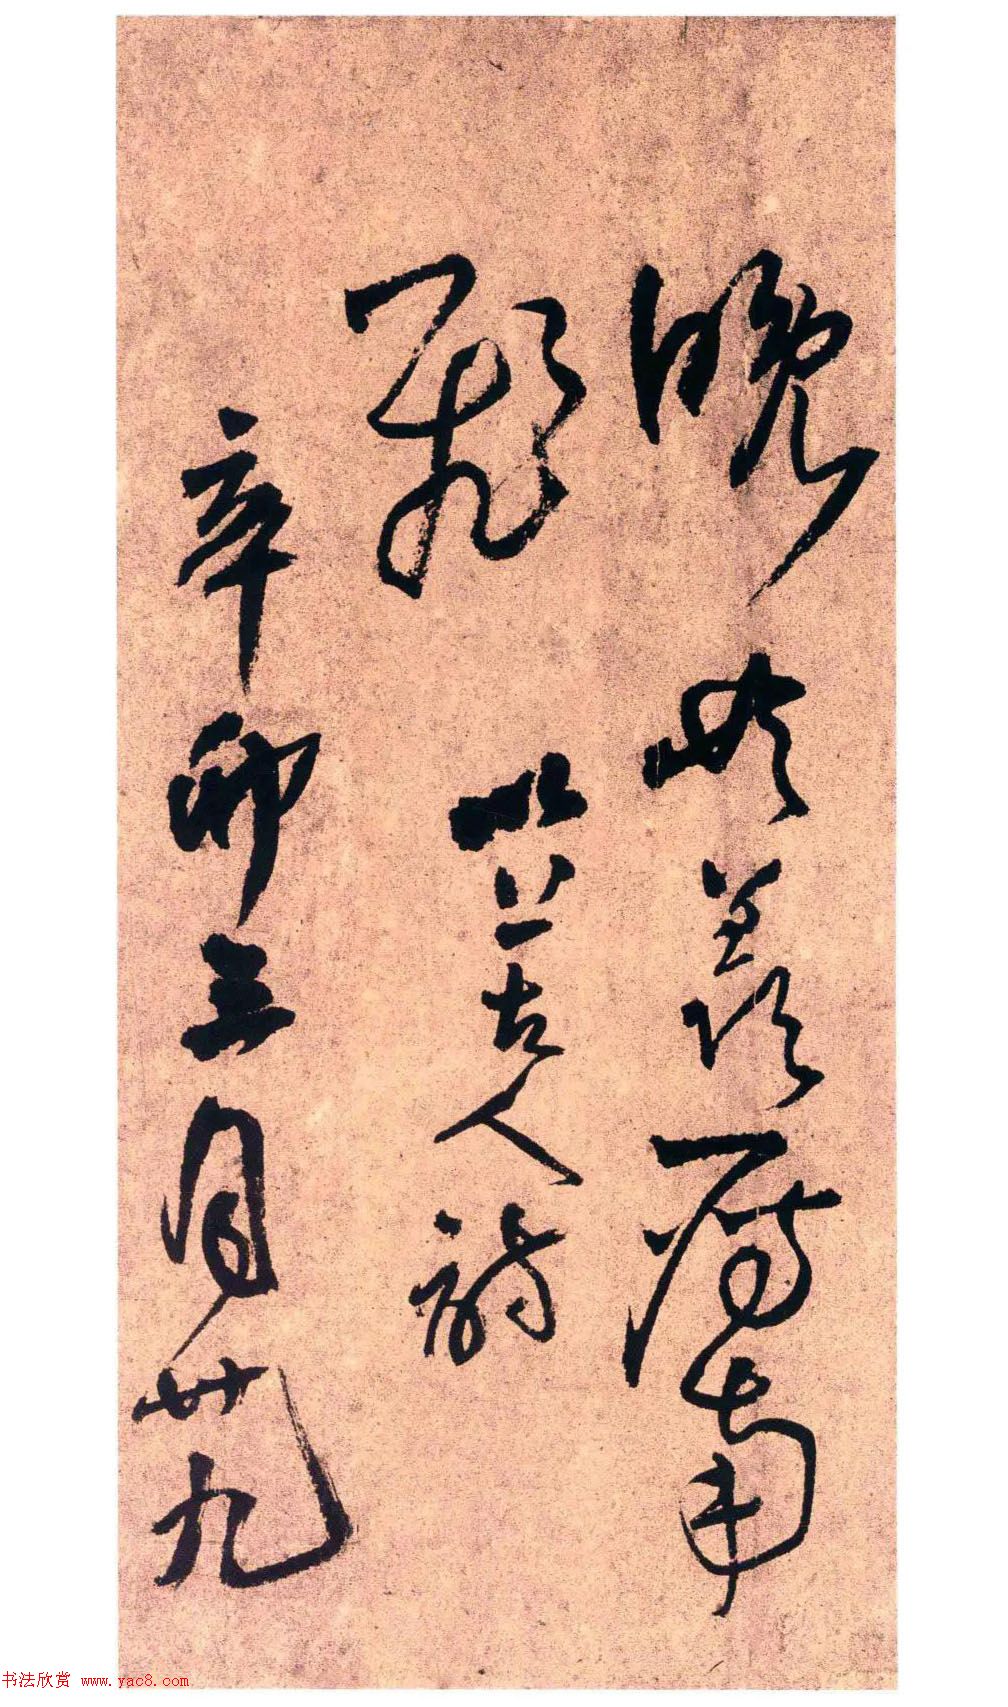 晚羨鴈南
飛 以上古人詩
辛卯三月廿九
书法欣赏 www.yac8.com